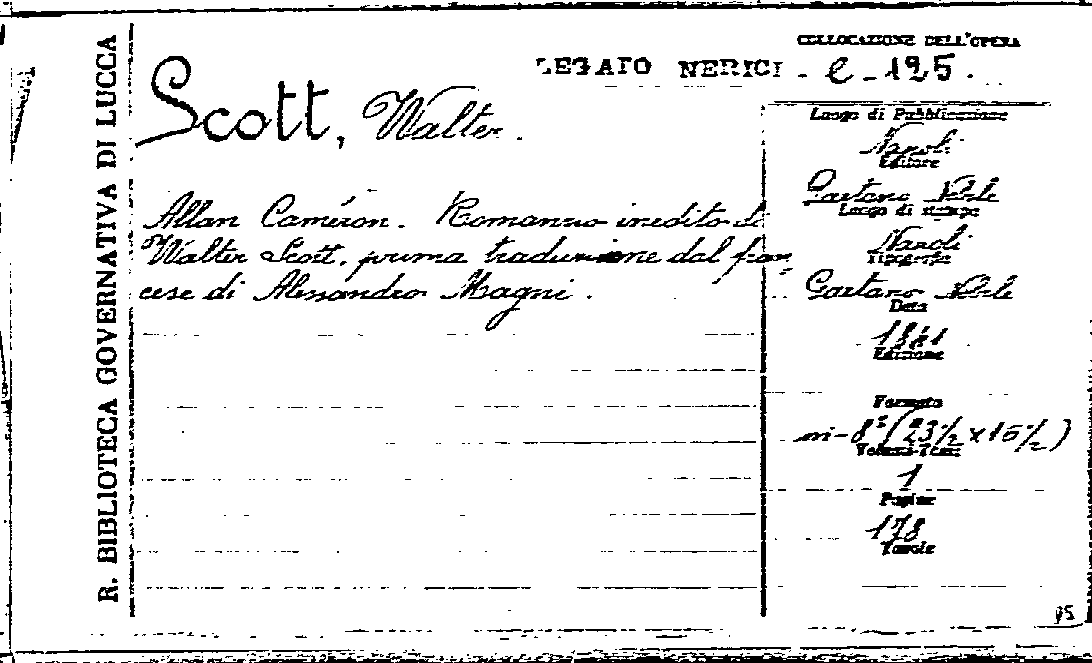 R. BIBLIOTECA GOVERNATIVA DI LUCCA
COLLOCAZIONE DELL'OPERA
LEGATO NERICI - C - 125.
Scott, Walter.
Allan Caméron. Romanzo inedito di
Walter Scott, prima traduzione dal fran
cese di Alessandro Magni.
Luogo di Pubblicazione
Napoli
Editore
Gaetano Nobile
Luogo di stampa
Napoli
Tipografia
Gaetano Nobile
Data
1841
Edizione
Formato
in-8° (23½ x 15½)
Volumi-Tomi
1
Pagine
178
Tavole